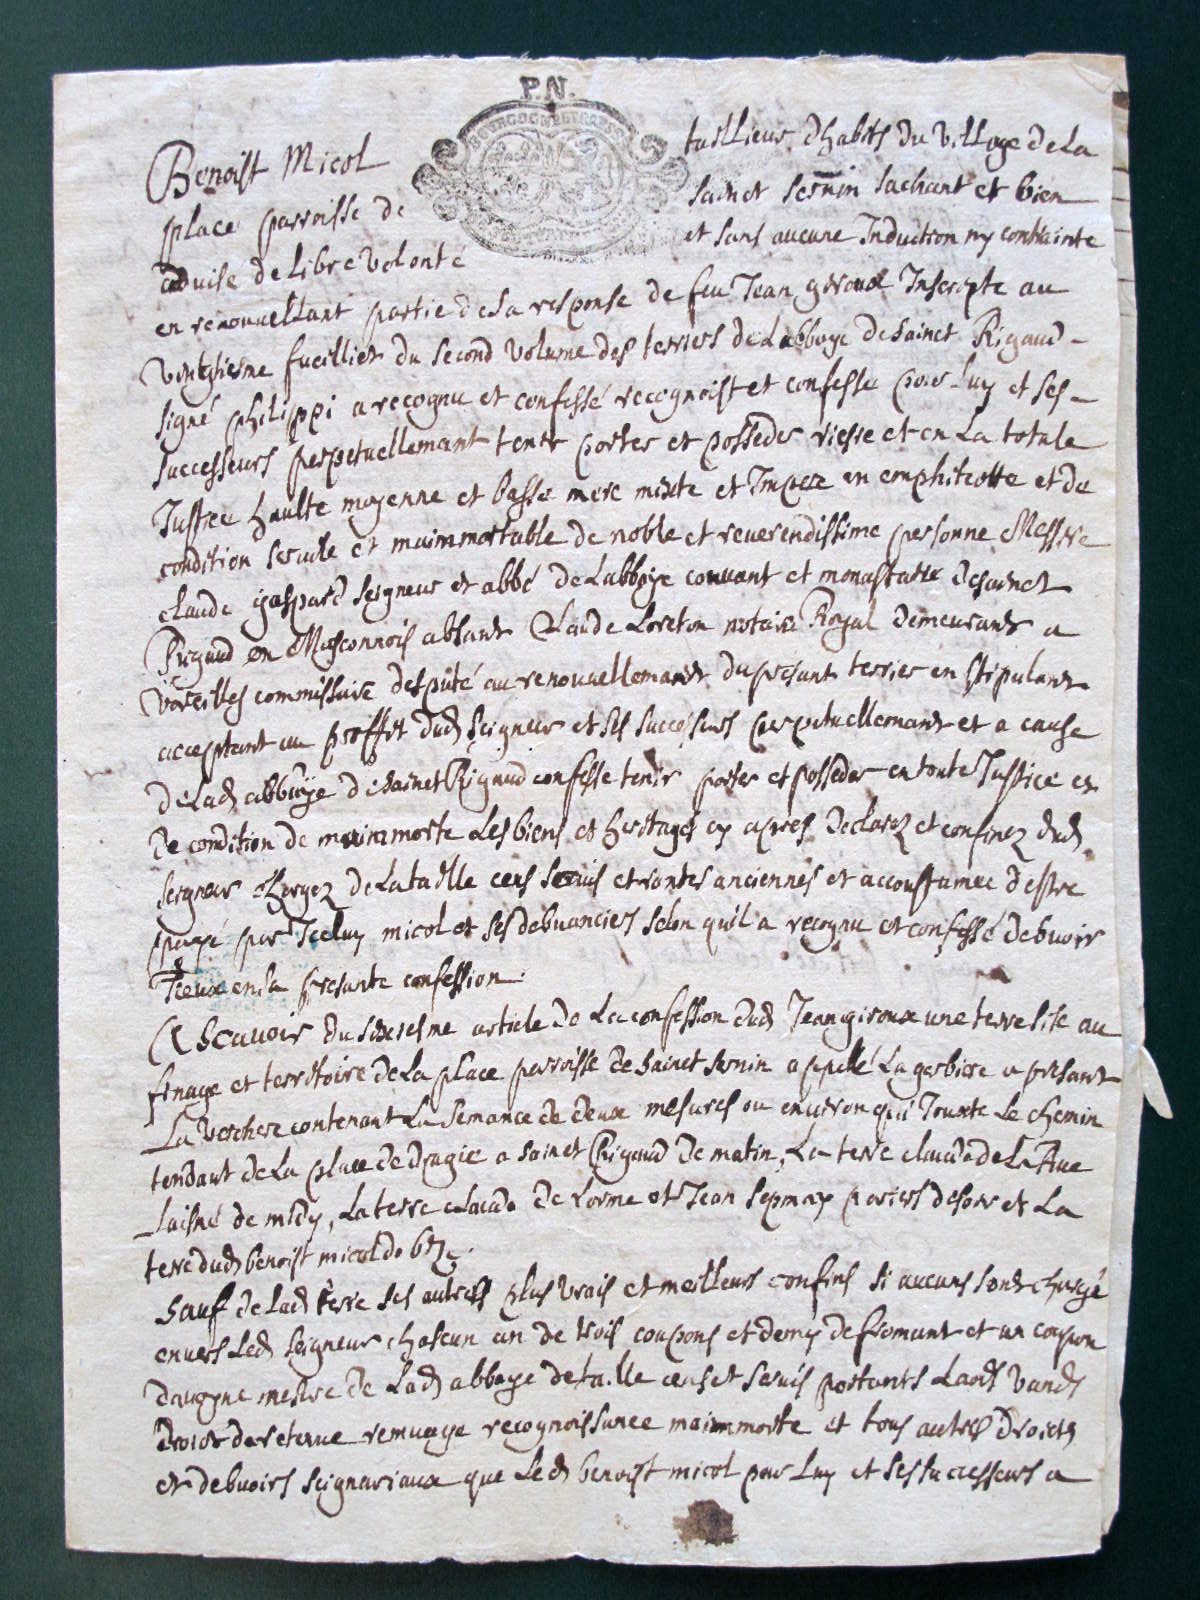 P.N.
Benoist Micol taillieur dhabits du village de la
place parroisse de sainct sernin sachant et bien
advise de libre volonté et sans aucune Induction ny contrainte
en renouvellant partie de la response de feu Jean giroux Inscripte au
vingtiesme fueilliet du second volume des terriers de Labbaye de sainct Rigaud
signé philippi a recognu et confessé recognoist et confesse pour luy et ses
successeurs perpetuellemant tenir porter et posseder riesre et en La totale
Justice haulte moyenne et basse mere mixte et Impere en emphiteotte et de
condition servile et mainmortable de noble et reverendissime personne Messire
claude gaspard seigneur et abbé de Labbaye couvant et monastaire de sainct
Rigaud en Masconnois absant Claude Loreton notaire Royal demeurant a
Vareilles commissaire desputé au renouvellemant du presant terrier en stipulant
acceptant au proffit dud seigneur et ses successeurs perpetuellemant et a cause
de Lad abbaye de sainct Rigaud confesse tenir porter et posseder en toute Justice et
de condition de mainmorte Les biens et heritages cy apres declarez et confinez dud
seigneur chargez de La taille cens servis et rantes anciennes et accoustumee destre
payé par Iceluy micol et ses devanciers selon quil a recognu et confessé debvoir
Iceux en sa presante confession.
A Scavoir du sixiesme article de La confession dud Jean giroux une terre sise au
finage et territoire de La place parroisse de sainct sernin appellé La gerbiere a presant
La verchere contenant La semance de deux mesures ou environ qui Jouxte Le chemin
tendant de La place de dragie a sainct Rigaud de matin, La terre claude de La Rue
Laisné de midy, La terre claude de Lorme et Jean sepmay pariers de soir et La
terre dud benoist micol de bize.
Sauf de Lad terre ses autres plus vrais et meilleurs confins si aucuns sont chargé
envers Led seigneur chascun an de trois coupons et demy de fromant et un coupon
davoyne mesure de Lad abbaye de taille cens et servis portants Laods vands
droict de retenue remuage recognoissance mainmorte et tous autres droicts
et debvoirs seignariaux que Led benoist micol pour Luy et ses successeurs a